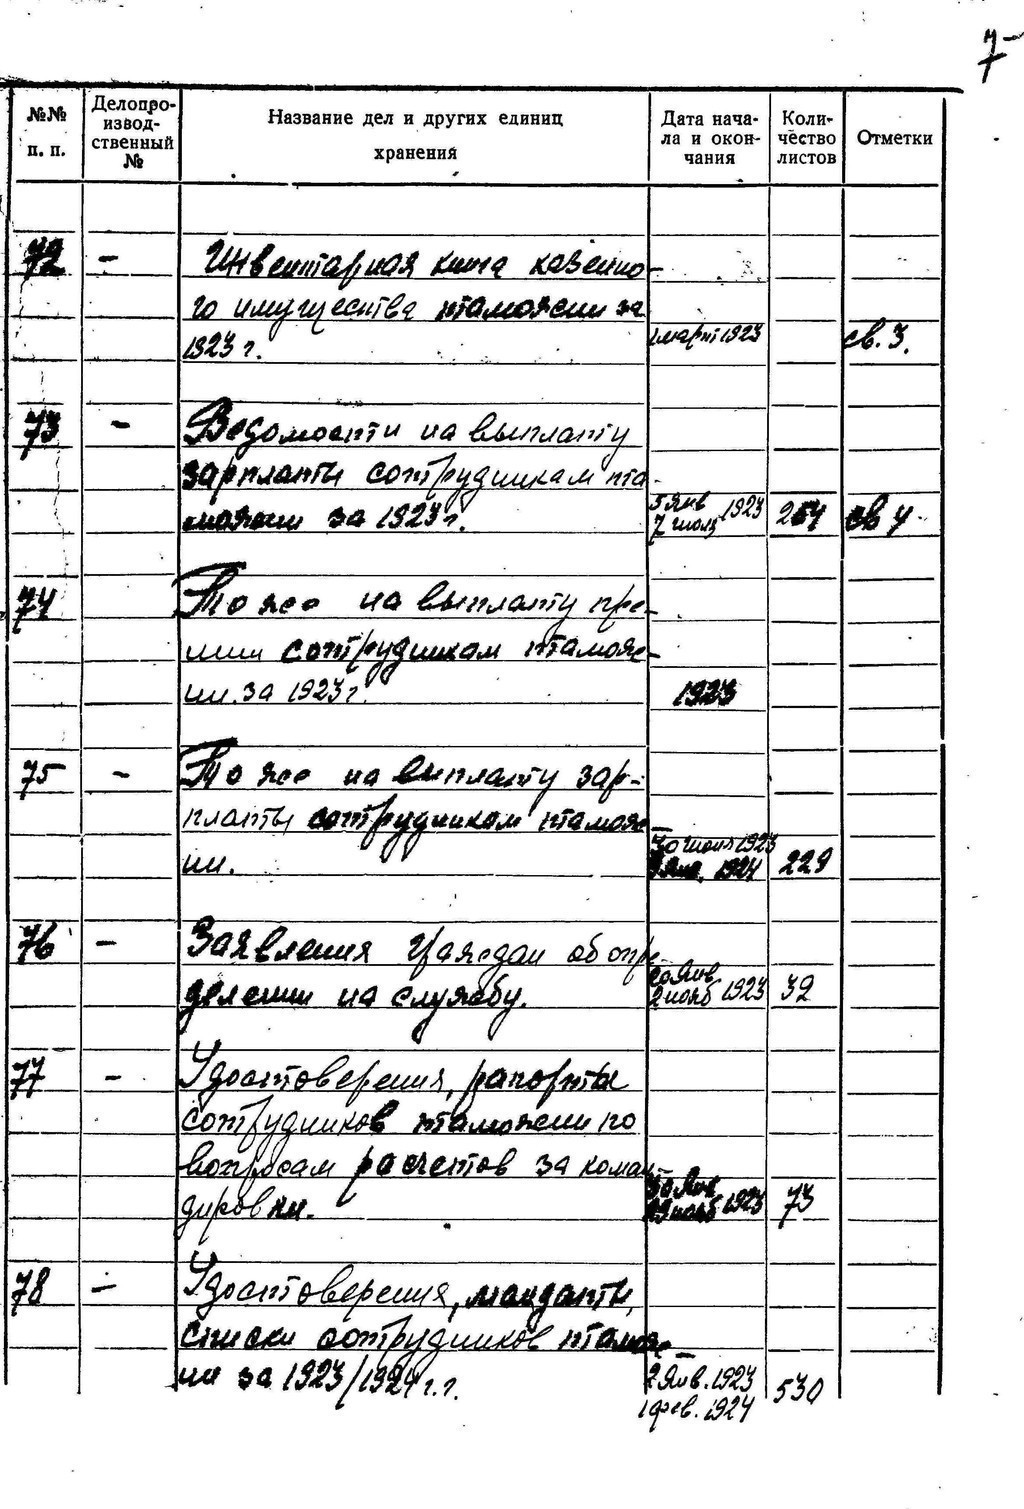 7
№№ п. п.
Делопро-извод-ственный №
Название дел и других единиц хранения
Дата нача-ла и окон-чания
Коли-чество листов
Отметки
72 - Инвентарная книга казенно-
го имущества таможни за
1923 г. 1 март 1923 св. 3.
73 - Ведомости на выплату
зарплаты сотрудникам та-
можни за 1923 г. 5 янв 7 июля 1923 264 св 4
74 То же на выплату пре-
мии сотрудникам тамож-
ни. за 1923 г. 1923
75 - То же на выплату зар-
платы сотрудникам тамож-
ни. 30 июня 1923 1924 229
76 - Заявления граждан об опре-
делении на службу. 20 янв 2 нояб 1923 32
77 - Удостоверения, рапорты
сотрудников таможни по
вопросам расчетов за коман-
дировки. 30 янв 29 нояб 1923 73
78 - Удостоверения, мандаты,
списки сотрудников тамож-
ни за 1923/1924 г.г. 2 янв. 1923 530
1 фев. 1924